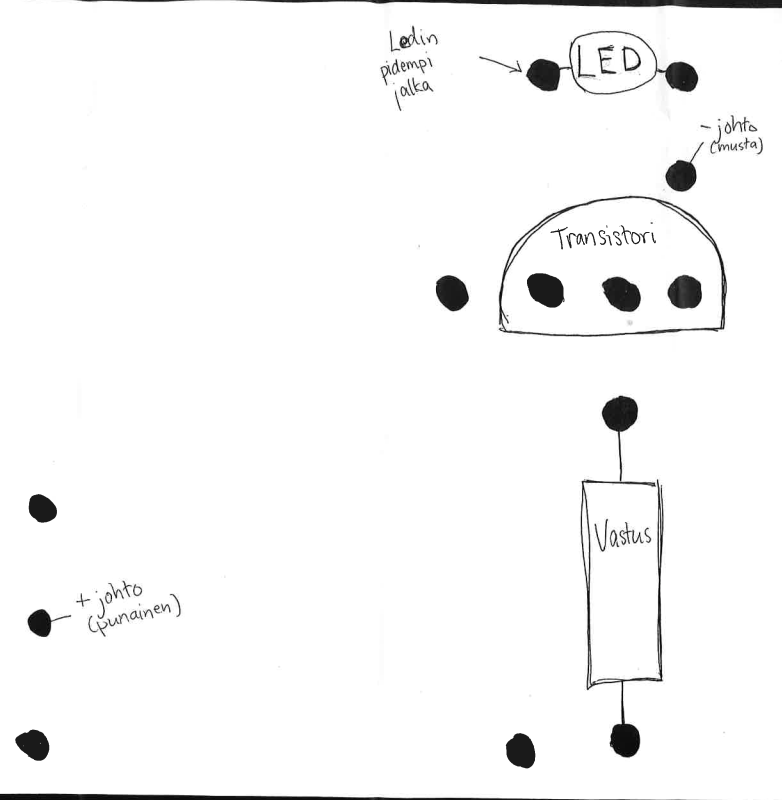 Ledin
pidempi
jalka
LED
- johto
(musta)
Transistori
Vastus
+ johto
(punainen)